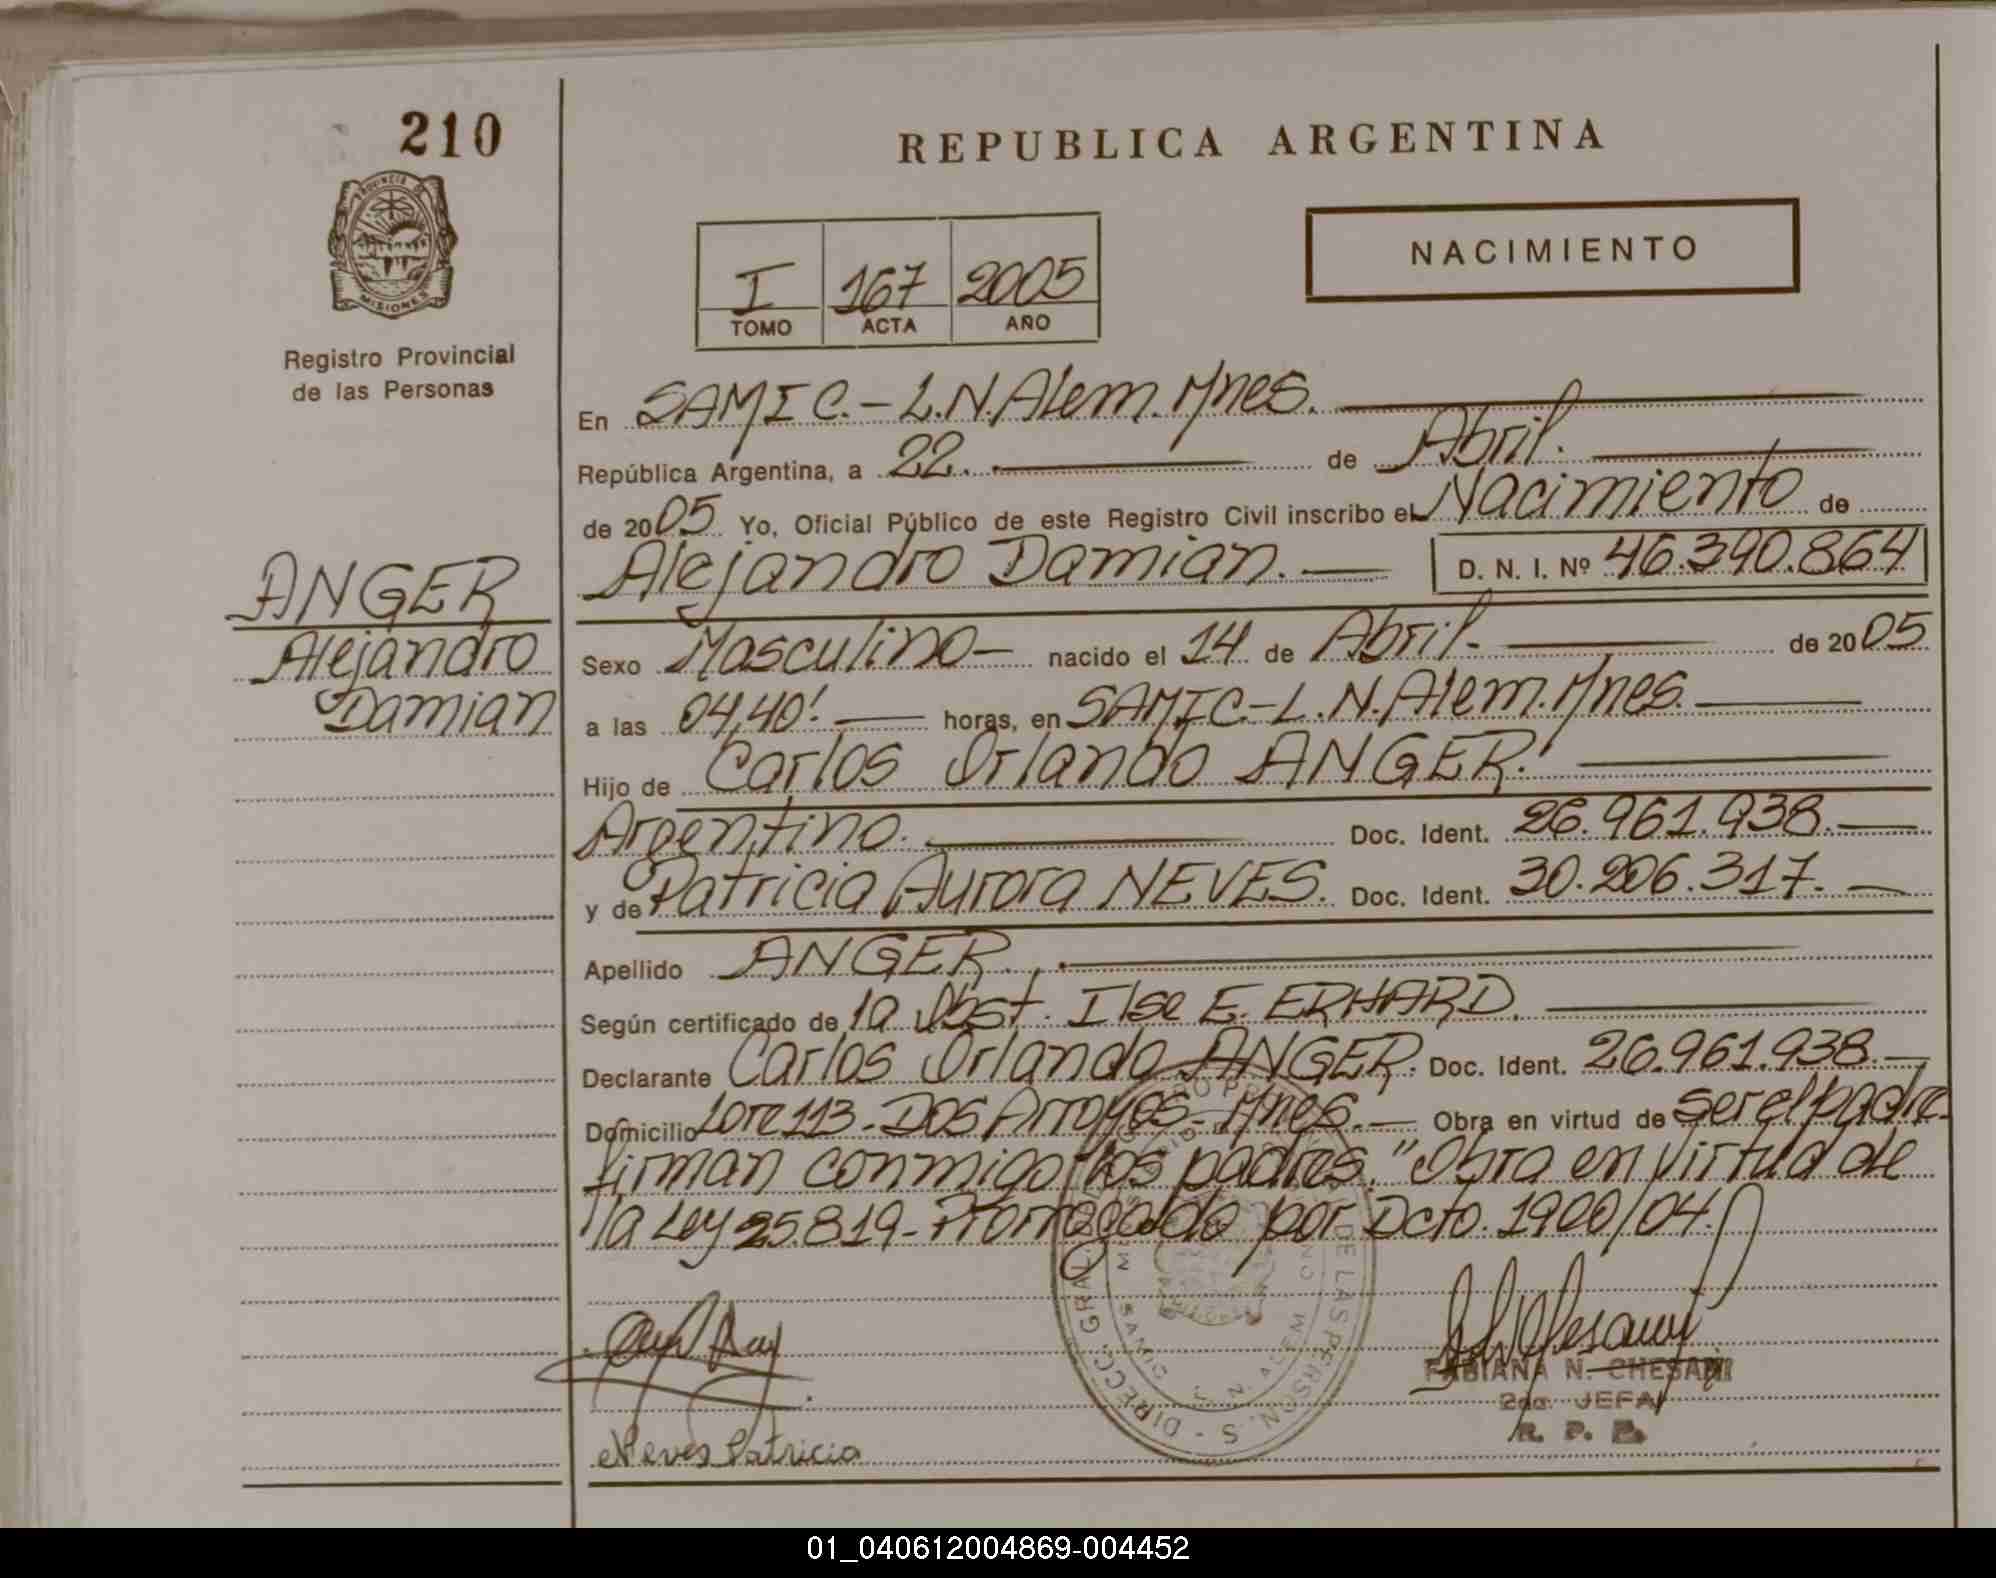 210
PROVINCIA DE
MISIONES
Registro Provincial
de las Personas
REPUBLICA ARGENTINA
NACIMIENTO
I 167 2005
TOMO ACTA AÑO
En SAMIC.- L.N.Alem.Mnes.
República Argentina, a 22. de Abril.
de 2005 Yo, Oficial Público de este Registro Civil inscribo el Nacimiento de
Alejandro Damian. D. N. I. Nº 46.390.864
ANGER
Alejandro
Damian
Sexo Masculino- nacido el 14 de Abril- de 2005
a las 04,40'. horas, en SAMIC-L.N.Alem.Mnes.
Hijo de Carlos Orlando ANGER.
Argentino. Doc. Ident. 26.961.938.
y de Patricia Aurora NEVES. Doc. Ident. 30.206.317.
Apellido ANGER.
Según certificado de la Obst. Ilse E. ERHARD.
Declarante Carlos Orlando ANGER. Doc. Ident. 26.961.938.
Domicilio Lote 113-Dos Arroyos-Mnes. Obra en virtud de ser el padre
firman conmigo los padres. "Obra en virtud de
la Ley 25.819-Prorrogado por Dcto. 1900/04.
Neves Patricia
FABIANA N. CHESANI
2da. JEFA
R. P. P.
01_040612004869-004452